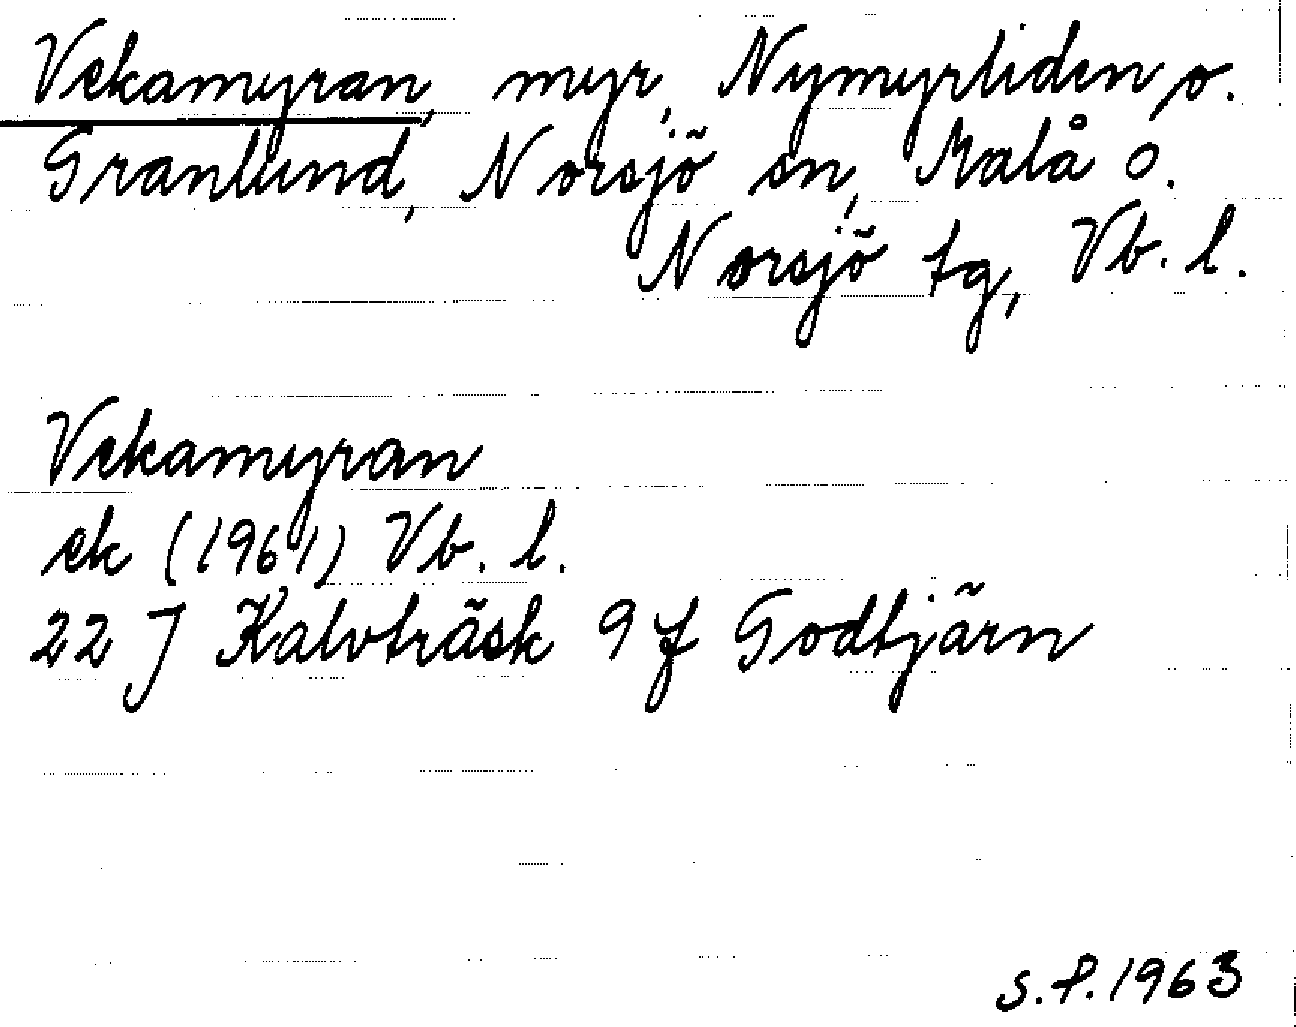 Vekamyran, myr, Nymyrliden o.
Granlund, Norsjö sn, Malå o.
Norsjö tg, Vb. l.
Vekamyran
ek (1961) Vb. l.
22 J Kalvträsk 9 f Godtjärn
S.P. 1963